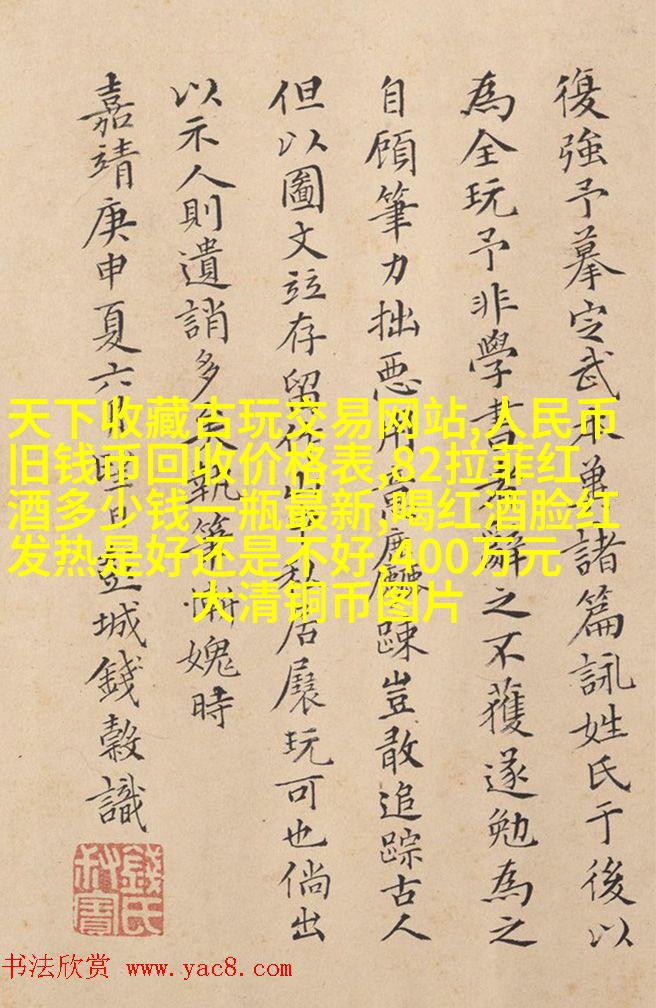 復強予摹定武諸篇詠姓氏于後以
為全玩予非學書者辭之不獲遂勉為之
自顧筆力拙惡用意麤踈豈敢追踪古人
但以圖文竝存留作私居展玩可也倘出
以示人則遺誚多矣執筆慚愧時
嘉靖庚申夏六月城錢穀識
錢氏叔寶
天下收藏古玩交易网站,人民币
旧钱币回收价格表,82拉菲红
酒多少钱一瓶最新,喝红酒脸红
发热是好还是不好,400万元
大清铜币图片
书法欣赏 www.yac8.com